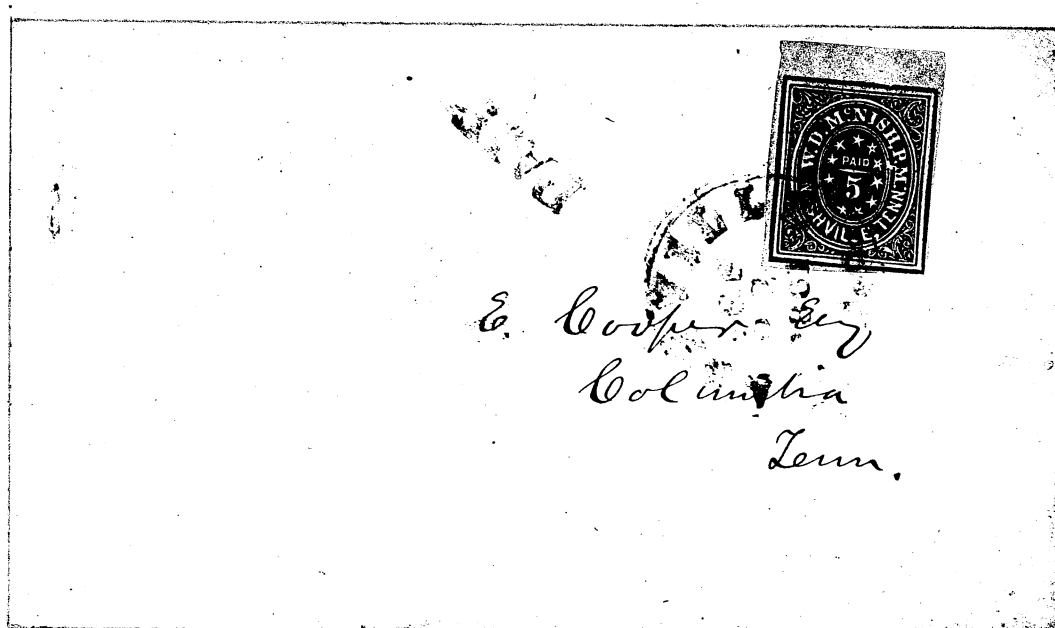 PAID
W.D. McNISH, P.M.
PAID
5
NASHVILLE, TENN.
E. Cooper Esq
Columbia
Tenn.